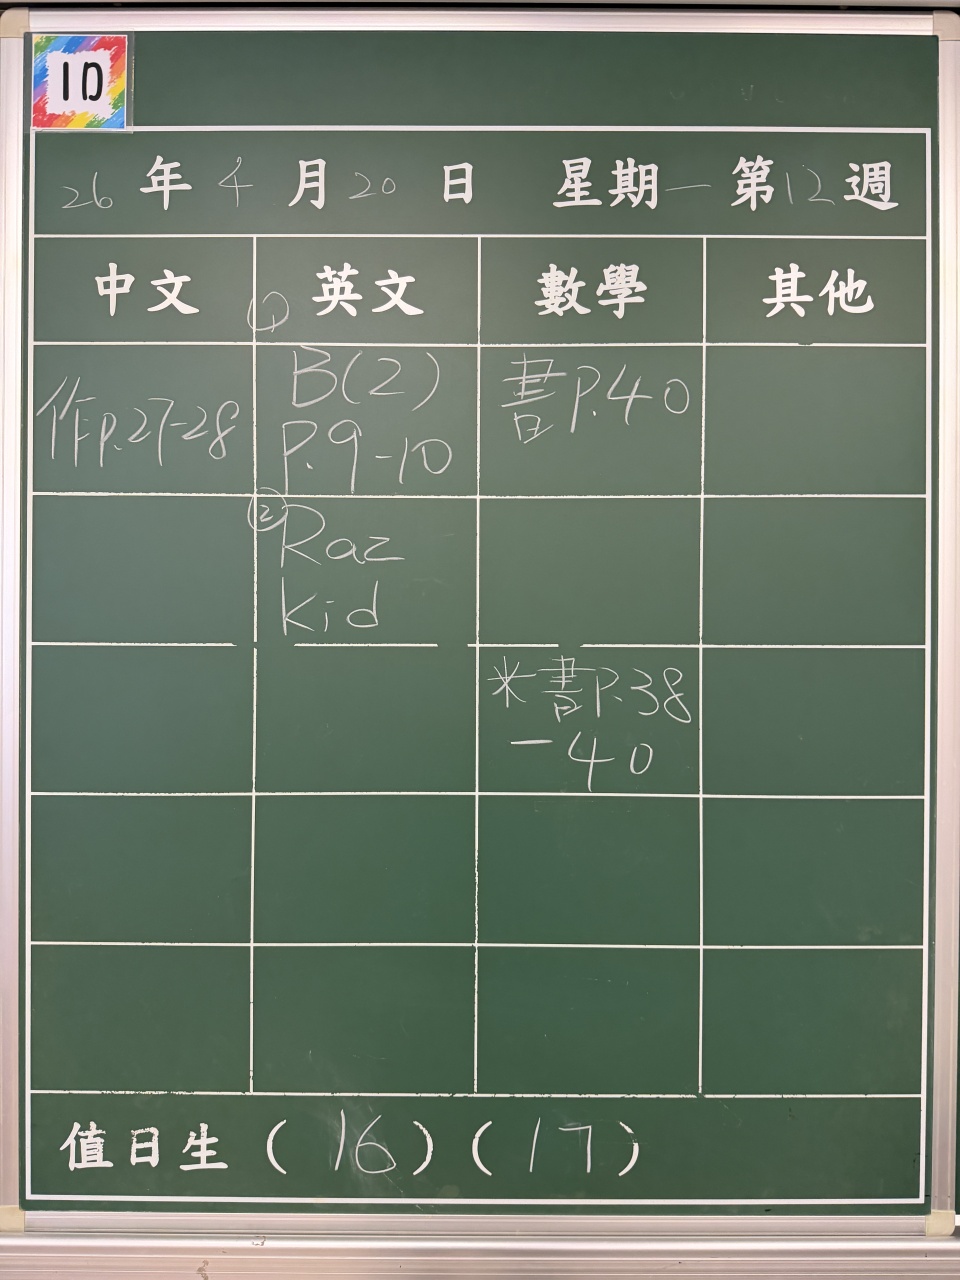 1D
26年4月20日 星期一 第12週
中文 英文 數學 其他
①
作P.27-28
B(2)
P.9-10
書P.40
②
Raz
kid
*書P.38
-40
值日生(16)(17)